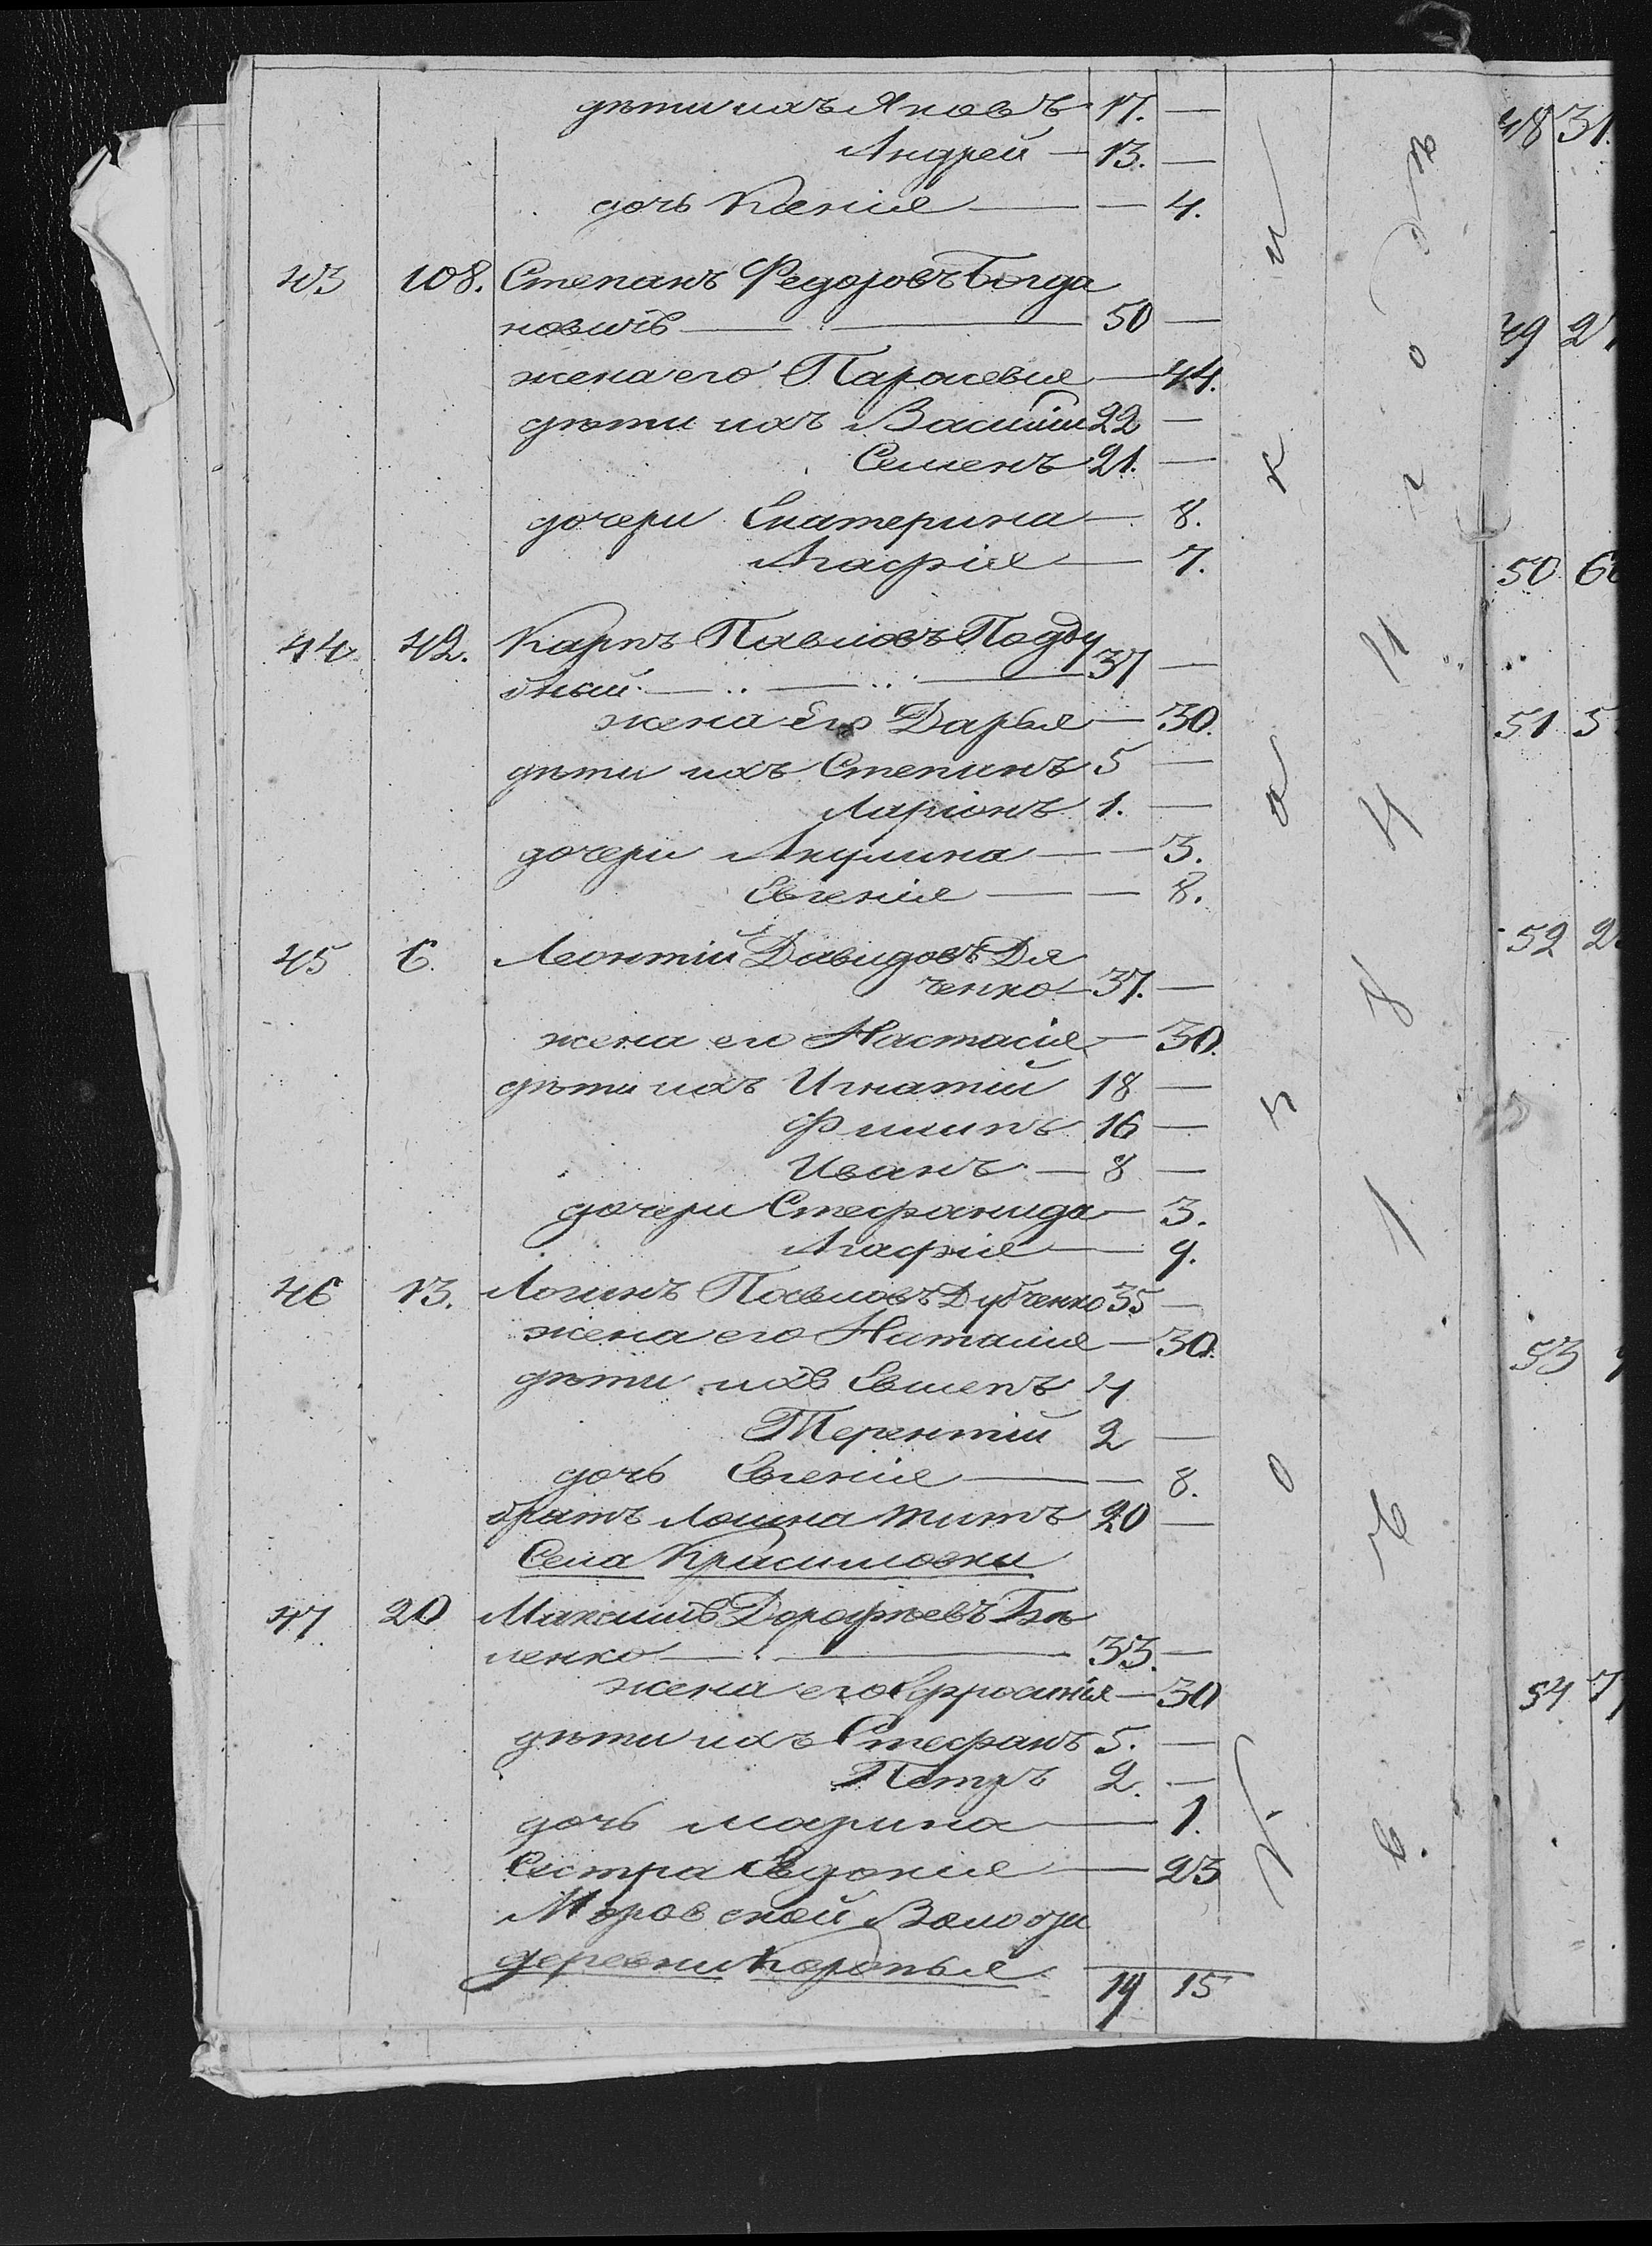 дѣти ихъ Яковъ 17. —
Андрей — 13. —
дочь Ксенія — — 4.
43 108. Степанъ Федоровъ Богда
новичь — 50 —
жена его Парасевія — 44.
дѣти ихъ Василій 22 —
Семенъ 21. —
дочери Екатерина — 8.
Агафія — 7.
44 42. Карпъ Павловъ Подду
бный — 37 —
жена его Дарья — 30.
дѣти ихъ Степанъ 5 —
Ларіонъ 1. —
дочери Акулина — — 3.
Евгенія — — 8.
45 6. Леонтій Давидовъ Дя
ченко — 37. —
жена его Настасія — 30.
дѣти ихъ Игнатій 18 —
Филипъ 16 —
Иванъ — 8 —
дочери Стефанида — 3.
Агафія — 9.
46 13. Логинъ Павловъ Дубченко 35 —
жена его Наталія — 30.
дѣти ихъ Евсипъ 4
Терентій 2 —
дочь Евгенія — — 8.
братъ Логина Титъ 20 —
Села Красиловки
47 20 Максимъ Дорофѣевъ Бѣ
ленко — 33. —
жена его Ефросинія — 30
дѣти ихъ Стефанъ 5. —
Петръ 2. —
дочь Марина — 1.
Сестра Евдокія — 23
Моровской Волости
деревни Коропья
19 15
К о з а к и
с 1 8 4 4 г о д
48 31.
49
50
51 5
52
53
54